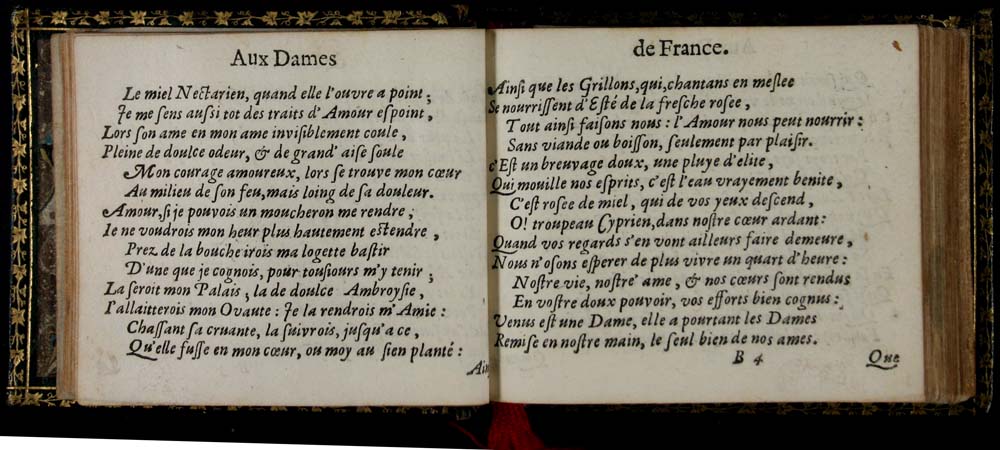 Aux Dames
Le miel Nectarien, quand elle l'ouvre a point;
Je me sens aussi tot des traits d'Amour espoint,
Lors son ame en mon ame invisiblement coule,
Pleine de doulce odeur, & de grand' aise soule
Mon courage amoureux, lors se trouve mon cœur
Au milieu de son feu, mais loing de sa douleur.
Amour, si je pouvois un moucheron me rendre,
Ie ne voudrois mon heur plus hautement estendre,
Prez de la bouche irois ma logette bastir
D'une que je cognois, pour tousiours m'y tenir;
La seroit mon Palais, la de doulce Ambroysie,
I'allaitterois mon Ovaute: Je la rendrois m'Amie:
Chassant sa cruante, la suivrois, jusqu'a ce,
Qu'elle fusse en mon cœur, ou moy au sien planté:
Ain
de France.
Ainsi que les Grillons, qui, chantans en meslee
Se nourrissent d'Esté de la fresche rosee,
Tout ainsi faisons nous: l'Amour nous peut nourrir:
Sans viande ou boisson, seulement par plaisir.
c'Est un breuvage doux, une pluye d'elite,
Qui mouille nos esprits, c'est l'eau vrayement benite,
C'est rosee de miel, qui de vos yeux descend,
O! troupeau Cyprien, dans nostre cœur ardant:
Quand vos regards s'en vont ailleurs faire demeure,
Nous n'osons esperer de plus vivre un quart d'heure:
Nostre vie, nostre' ame, & nos cœurs sont rendus
En vostre doux pouvoir, vos efforts bien cognus:
Venus est une Dame, elle a pourtant les Dames
Remise en nostre main, le seul bien de nos ames.
B 4 Que